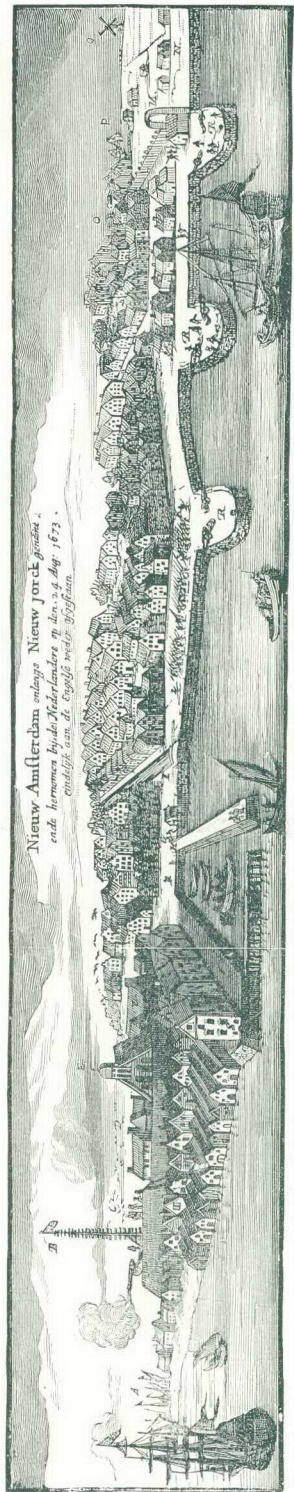 Nieuw Amsterdam onlangs Nieuw jorck genaemt,
ende hernomen bij de Nederlanders op den 24 Aug: 1673.
eindelijk aan de Engelse weder afgestaan.
B
E